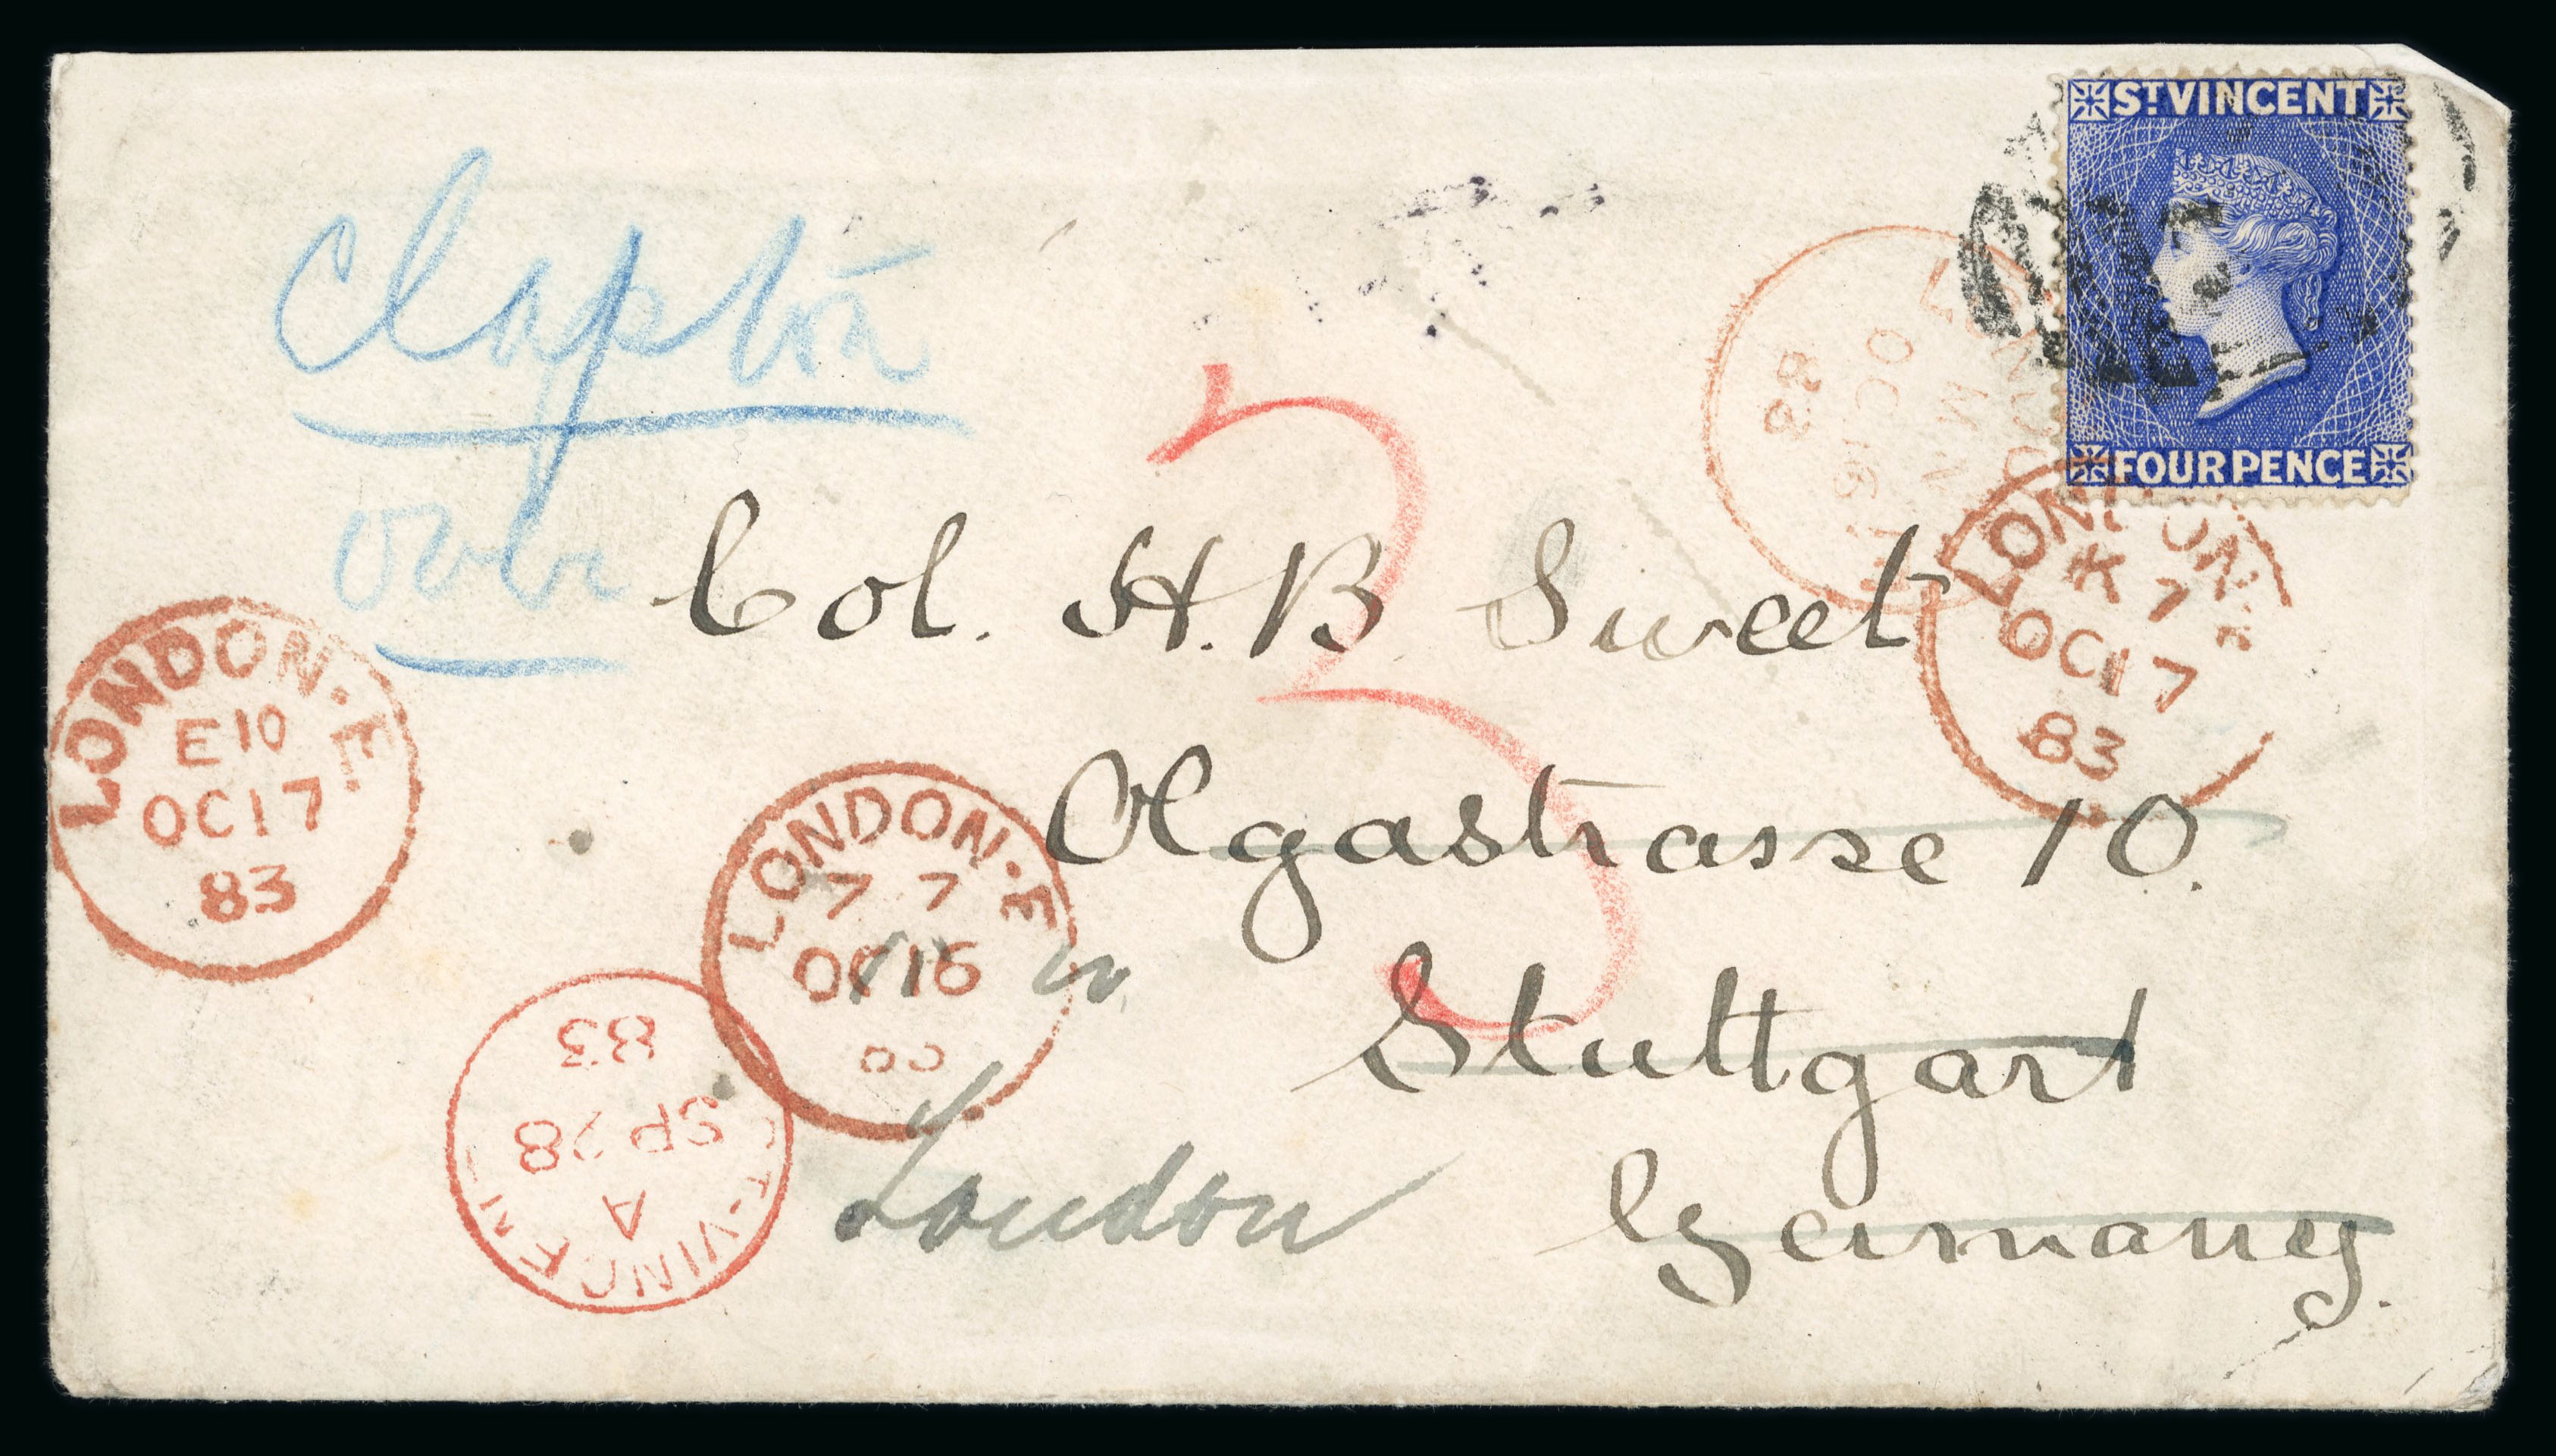 ST VINCENT
FOUR PENCE
Clapton
over
Col. H. B. Sweet
Olgastrasse 10.
Stuttgart
Germany.
London
LONDON
OC 16
83
LONDON
K 7
OC 17
83
LONDON. E.
E 10
OC 17
83
LONDON. E
7 7
OC 16
ST-VINCENT
A
SP 28
83